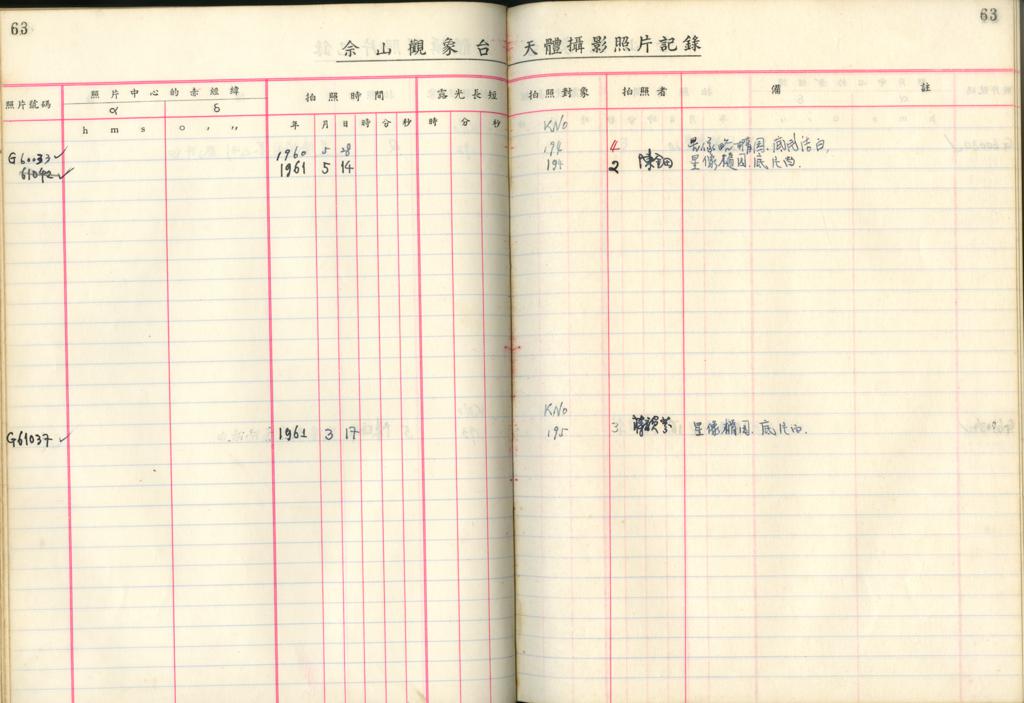 63
63
佘山觀象台 天體攝影照片記錄
照片號碼 照片中心的赤經緯 拍照時間 露光長短 拍照對象 拍照者 備 註
α δ
h m s ° ′ ″ 年 月 日 時 分 秒 時 分 秒
KNo
G60033✓ 1960 5 28 194 4
61042✓ 1961 5 14 194 2 星像橢圓.底片
KNo
G61037✓ 1961 3 17 195 3 星像橢圓.底片